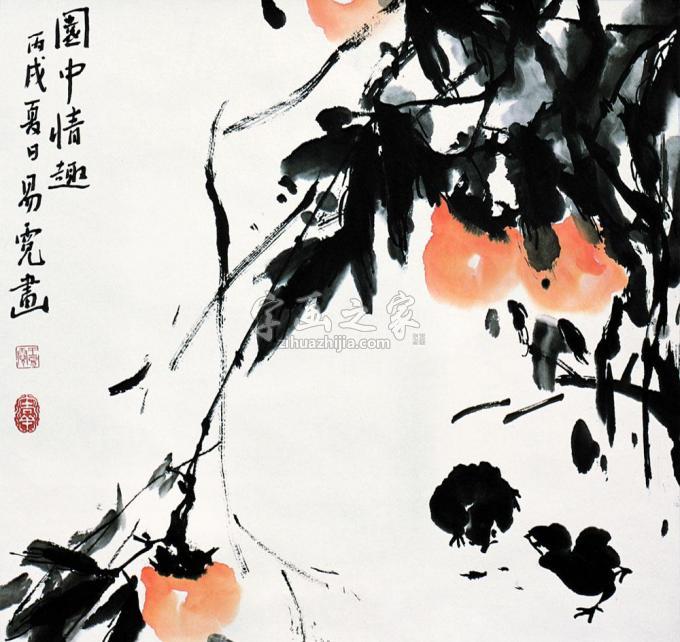 園中情趣
丙戌夏日易霓畫
字画之家
zihuazhijia.com